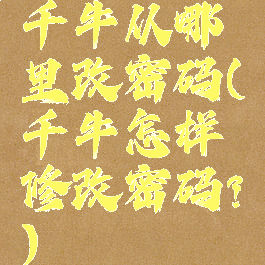 千牛从哪
里改密码(
千牛怎样
修改密码?
)